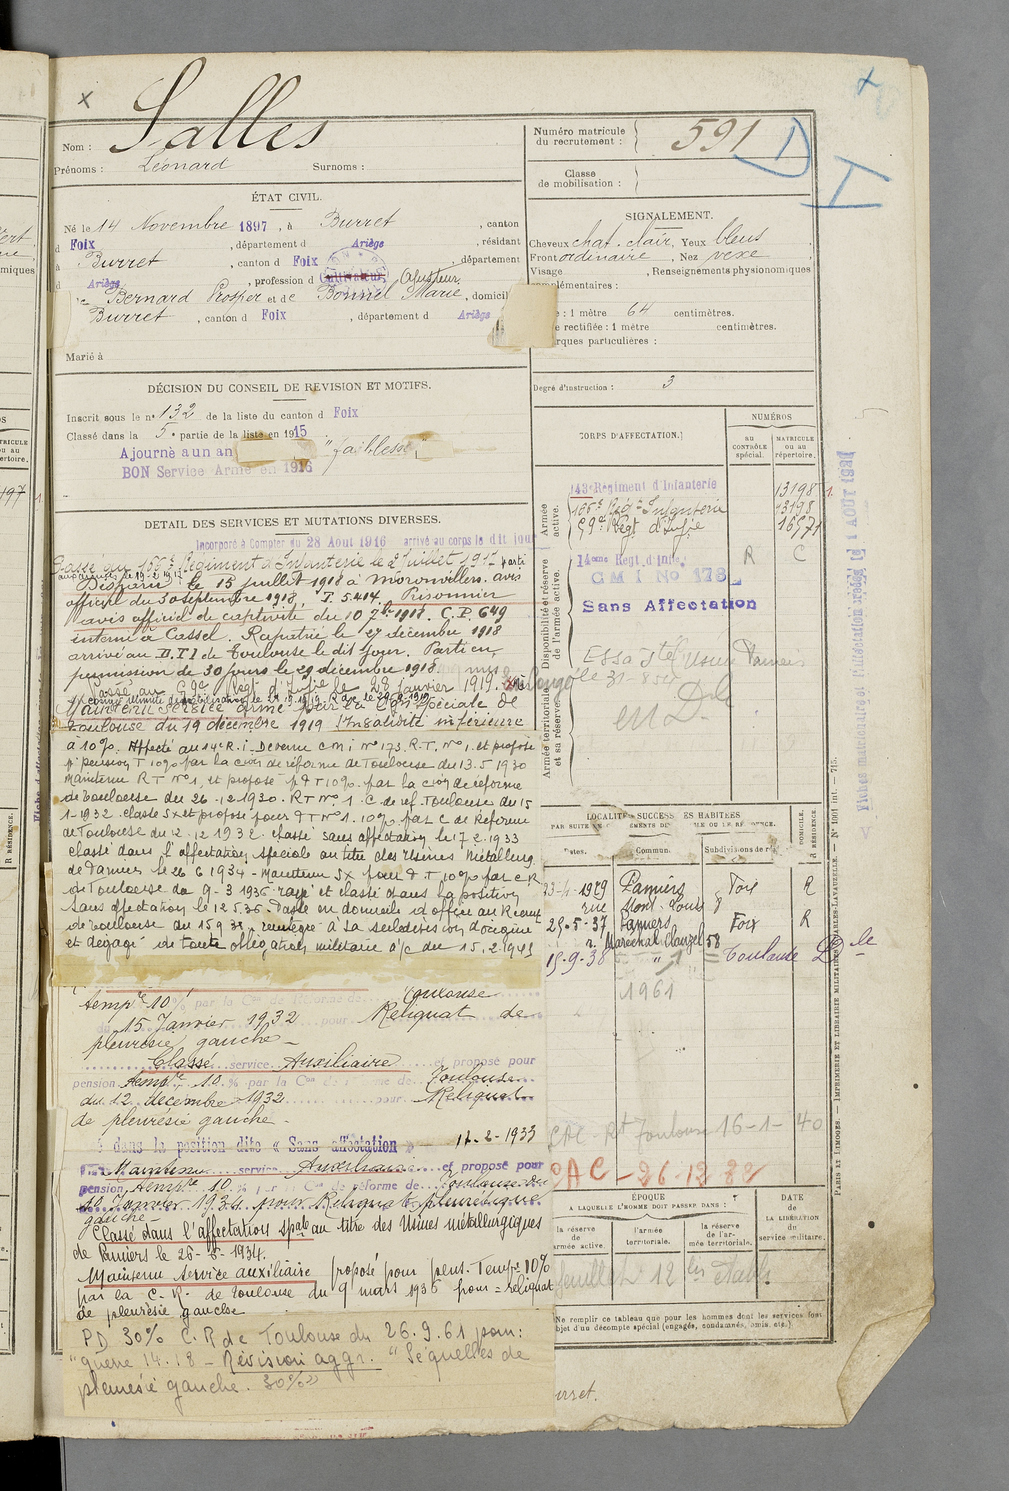 Salles
Nom :
Prénoms : Léonard Surnoms :
ÉTAT CIVIL.
Né le 14 Novembre 1897, à Burret, canton
d Foix, département d Ariège, résidant
à Burret, canton d Foix, département
d Ariège, profession d Cultivateur, Ajusteur
Bernard Prosper et de Bonnel Marie, domicil
Burret, canton d Foix, département d Ariège
Marié à
DÉCISION DU CONSEIL DE REVISION ET MOTIFS.
Inscrit sous le n° 132 de la liste du canton d Foix
Classé dans la 5e partie de la liste en 1915
Ajourné à un an "faiblesse"
BON Service Armé en 1916
DÉTAIL DES SERVICES ET MUTATIONS DIVERSES.
Incorporé à Compter du 28 Août 1916 arrivé au corps le dit jour
Passé au 166e Régiment d'Infanterie le 2 Juillet 1917 parti
Disparu le 15 juillet 1918 à Moronvillers. avis
officiel du 30 septembre 1918, I. 5.414. Prisonnier
avis officiel de captivité du 10 7bre 1918. C.P. 649
interné à Cassel. Rapatrié le 27 décembre 1918
arrivé au D.T.I de Toulouse le dit jour. Parti en
permission de 30 jours le 29 décembre 1918
Passé au 59e Régt d'Infie le 28 Janvier 1919.
Maintenu service armé par la Con Spéciale de
Toulouse du 19 décembre 1919 Invalidité inférieure
à 10%. Affecté au 14e R.I. Devenu C M I n° 173. R.T. N°1. et proposé
pr pension T 10% par la cion de réforme de Toulouse du 13.5.1930
Maintenu R T n°1, et proposé p d T 10% par la cion de réforme
de Toulouse du 26.12.1930. R T n° 1 C. de réf. Toulouse du 15
1-1932. classé Sx et proposé pour d T N°1. 10% par C de Réforme
de Toulouse du 12.12.1932. classé sans affectation le 17.2.1933
classé dans l'affectation spéciale au titre des Usines Métallurg.
de Pamiers le 26 6 1934 - Maintenu Sx pour d T 10% par C R
de Toulouse du 9-3 1936 rayé et classé dans la position
sans affectation le 12.5.36. Passé en domicile
de Toulouse du 15 9 38, réintégré à sa subdivision d'origine
et dégagé de toute obligation militaire à/c du 15.2.1943
temp.re 10% par la Con de Réforme de Toulouse
du 15 Janvier 1932 pour Reliquat de
pleurésie gauche -
Classé service Auxiliaire et proposé pour
pension temp.re 10.% par la Con de réforme de Toulouse
du 12 décembre 1932 pour Reliquat
de pleurésie gauche -
é dans la position dite « Sans affectation » 17-2-1933
Maintenu service Auxiliaire et proposé pour
pension temp.re 10.% par la Con de réforme de Toulouse du
10 Janvier 1934 pour Reliquat pleurétique
gauche -
Classé dans l'affectation spale au titre des Usines métallurgiques
de Pamiers le 26-6-1934.
Maintenu service auxiliaire proposé pour pens. Tempre 10%
par la C. R. de Toulouse du 9 mars 1936 pour = reliquat
de pleurésie gauche
PD 30% C.R de Toulouse du 26.9.61 pour:
"guerre 14.18 - Révision aggr. "Séquelles de
pleurésie gauche. 30%"
Numéro matricule
du recrutement : 591
D
I
Classe
de mobilisation :
SIGNALEMENT.
Cheveux chat. clair, Yeux bleus
Front ordinaire, Nez vexe,
Visage , Renseignements physionomiques
complémentaires :
: 1 mètre 64 centimètres.
e rectifiée : 1 mètre centimètres.
rques particulières :
Degré d'instruction : 3
CORPS D'AFFECTATION.
NUMÉROS
AU CONTRÔLE spécial.
MATRICULE ou au répertoire.
Armée active.
143e Régiment d'Infanterie 13198
166e Régt Infanterie 13198
59e Régt d'Infie 16571
Disponibilité et réserve de l'armée active.
14ème Régt d'Infie R C
C M I No 173
Sans Affectation
Armée territoriale et sa réserve
le 31-8-
en Dle
LOCALITÉS SUCCESSIVES HABITÉES
Dates. Commun. Subdivisions de r
DOMICILE. R RÉSIDENCE.
23-4-1929 Pamiers Foix R
rue Mont Louis 8
25-5-37 Pamiers Foix R
r. Maréchal Clauzel 58
15-9-38 " = Toulouse Dle
1961
CAC - Rt Toulouse 16-1-40
ÉPOQUE
A LAQUELLE L'HOMME DOIT PASSER DANS :
la réserve de armée active
l'armée territoriale.
la réserve de l'armée territoriale.
DATE de LA LIBÉRATION du service militaire.
feuillet 12
Ne remplir ce tableau que pour les hommes dont les services font
objet d'un décompte spécial (engagés, condamnés, omis, etc.)
PARIS ET LIMOGES. — IMPRIMERIE ET LIBRAIRIE MILITAIRES CHARLES-LAVAUZELLE. — N° 1001 int. — 715.